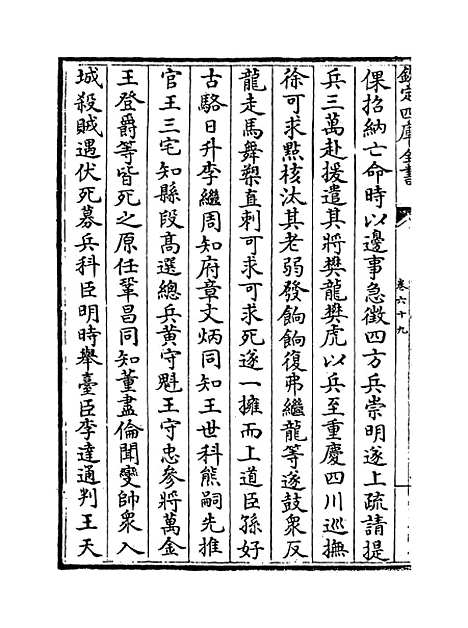 欽定四庫全書
卷六十九
倮招納亡命時以邊事急徵四方兵崇明遂上疏請提
兵三萬赴援遣其將樊龍樊虎以兵至重慶四川巡撫
徐可求點核汰其老弱發餉餉復弗繼龍等遂鼓衆反
龍走馬舞槊直刺可求可求死遂一擁而上道臣孫好
古駱日升李繼周知府章文炳同知王世科熊嗣先推
官王三宅知縣段髙選總兵黄守魁王守忠參將萬金
王登爵等皆死之原任鞏昌同知董盡倫聞變帥衆入
城殺賊遇伏死募兵科臣明時舉臺臣李達通判王天